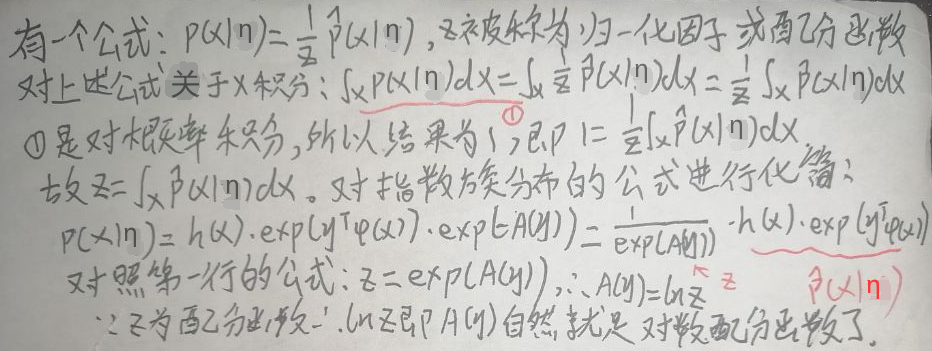 有一个公式: P(x|η)=1/Z P̂(x|η), Z被称为归一化因子或配分函数
对上述公式关于x积分: ∫ₓP(x|η)dx=∫ₓ 1/Z P̂(x|η)dx=1/Z ∫ₓP̂(x|η)dx
①
①是对概率积分,所以结果为1,即 1=1/Z∫ₓP̂(x|η)dx,
故Z=∫ₓP̂(x|η)dx。对指数族分布的公式进行化简:
P(x|η)=h(x)·exp(yᵀφ(x))·exp(-A(y))=1/exp(A(y))·h(x)·exp(yᵀφ(x))
对照第一行的公式: Z=exp(A(y)),∴A(y)=lnZ ↖Z P̂(x|η)
∵Z为配分函数∴lnZ即A(y)自然就是对数配分函数了.